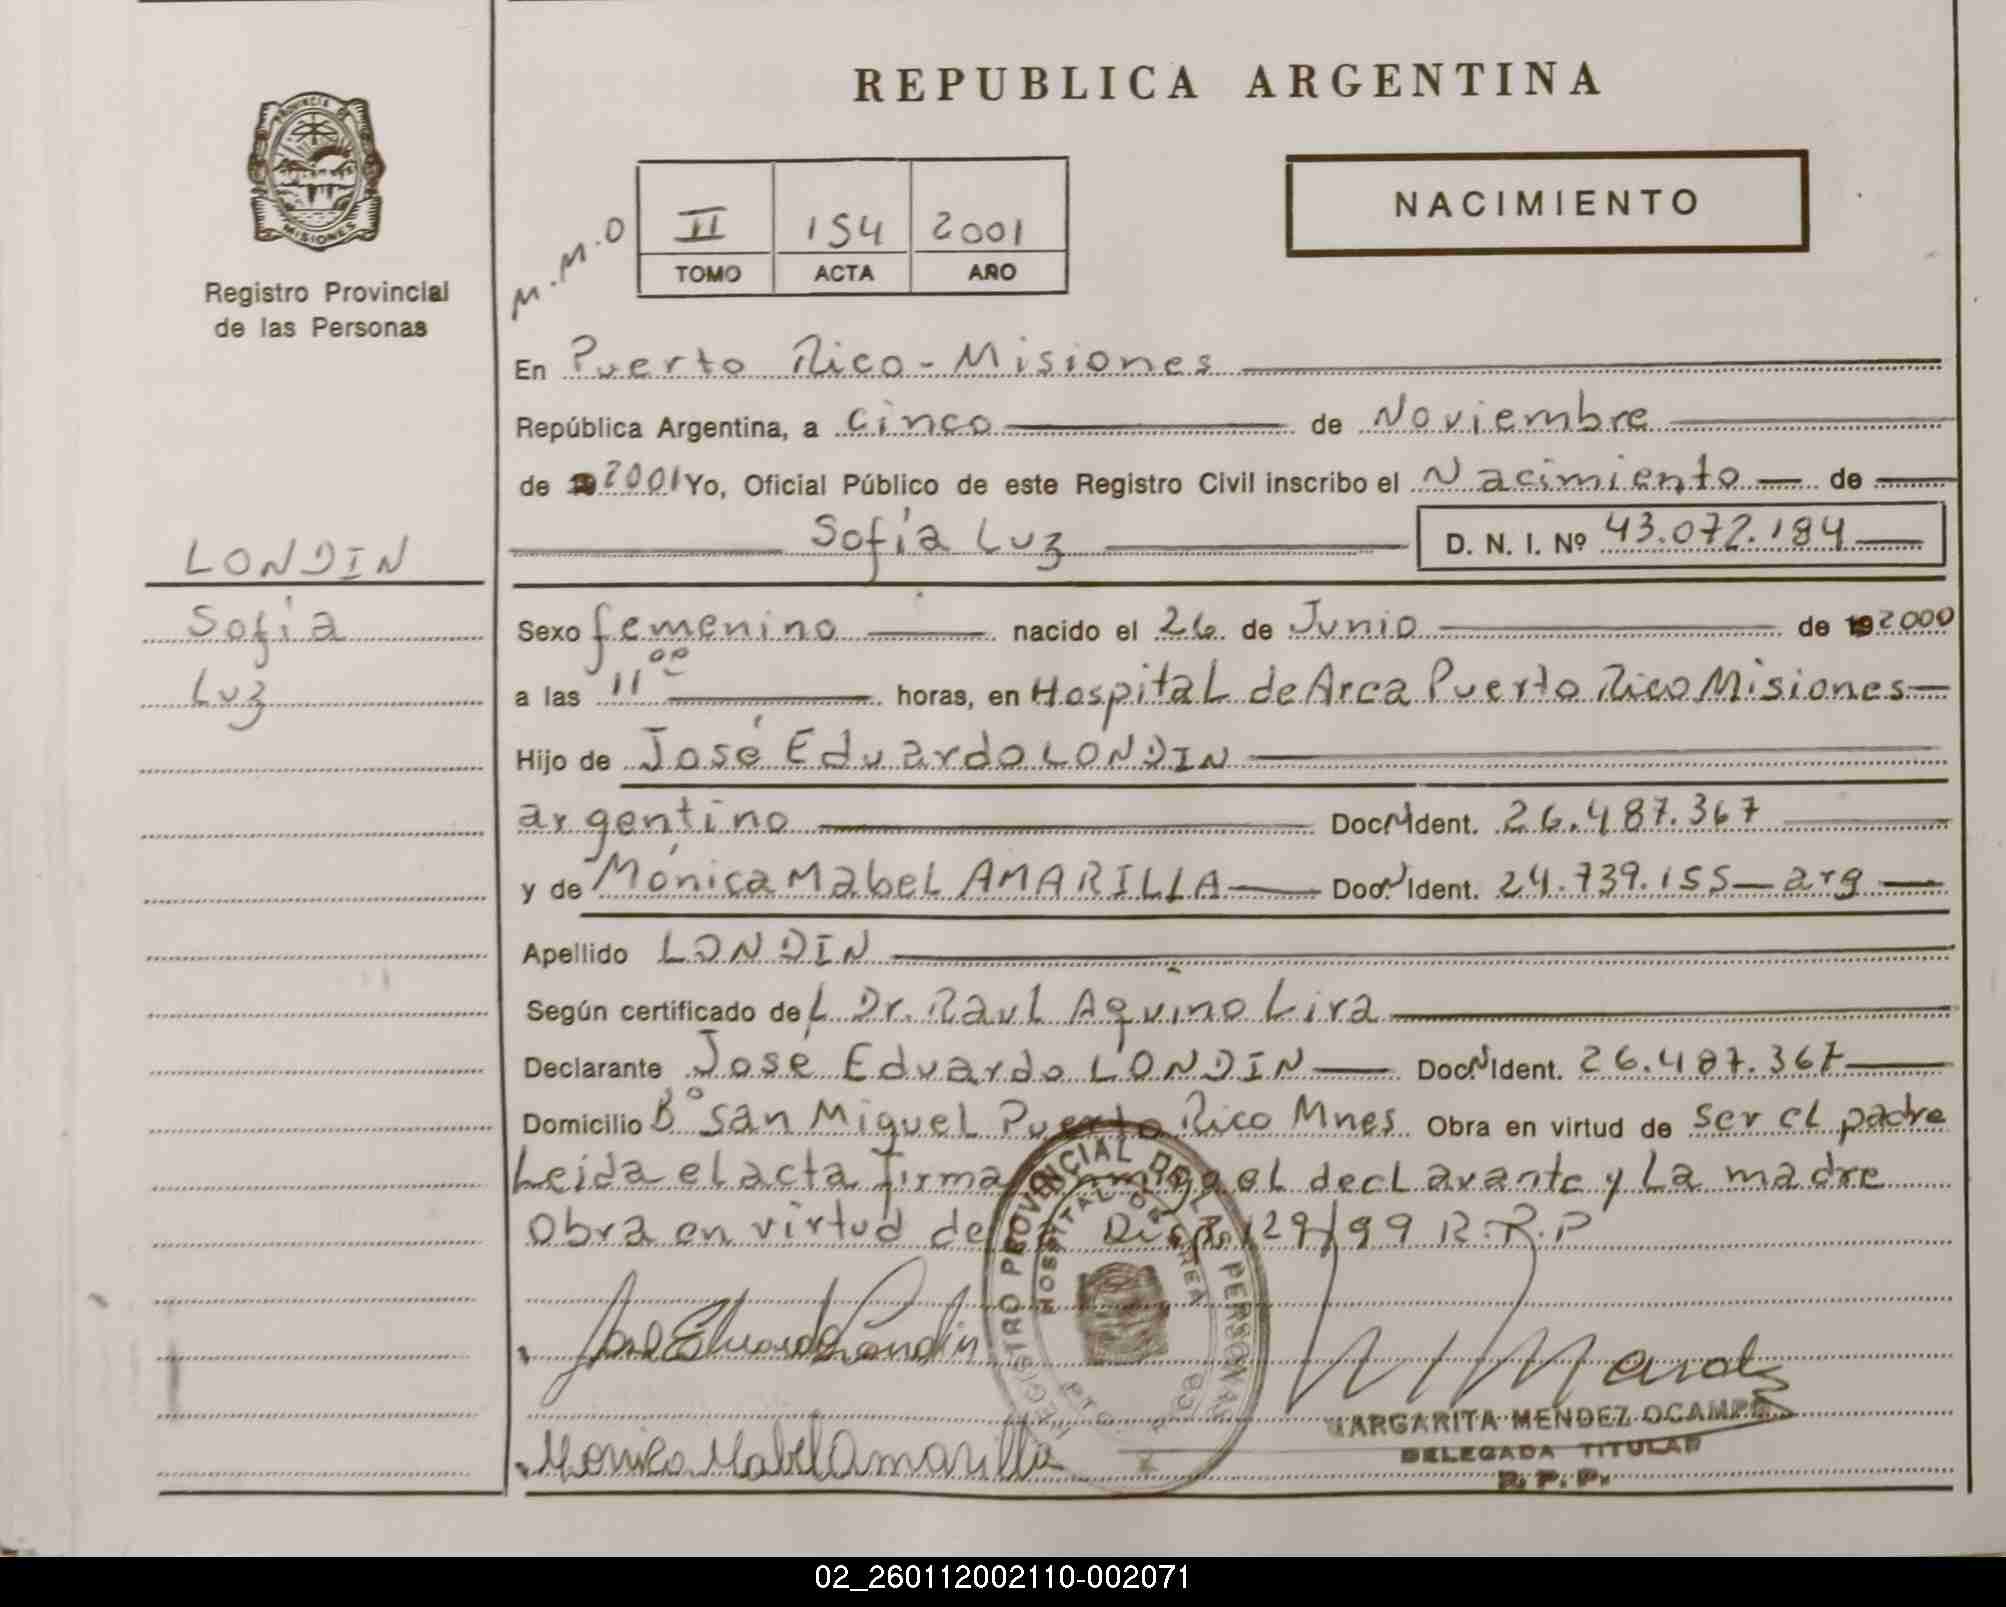 REPUBLICA ARGENTINA
PROVINCIA DE MISIONES
Registro Provincial
de las Personas
M.M.O
II 154 2001
TOMO ACTA AÑO
NACIMIENTO
En Puerto Rico - Misiones
República Argentina, a cinco de Noviembre
de 2001 Yo, Oficial Público de este Registro Civil inscribo el Nacimiento de
Sofía Luz D. N. I. Nº 43.072.184
LONDIN
Sofía
Luz
Sexo femenino nacido el 26 de Junio de 192000
a las 11 00 horas, en Hospital de Area Puerto Rico Misiones
Hijo de José Eduardo LONDIN
argentino Doc. Ident. 26.487.367
y de Mónica Mabel AMARILLA Doc. Ident. 24.739.155 - arg
Apellido LONDIN
Según certificado del Dr. Raul Aquino Lira
Declarante José Eduardo LONDIN Doc. Ident. 26.487.367
Domicilio Bº San Miguel Puerto Rico Mnes Obra en virtud de ser el padre
Leida el acta firma el declarante y La madre
Obra en virtud de Disp. 129/99 R.R.P
REGISTRO PROVINCIAL DE LAS PERSONAS
HOSPITAL DE AREA
PTO. RICO
José Eduardo Londin
MARGARITA MENDEZ OCAMPO
DELEGADA TITULAR
R. P. P.
Monica Mabel Amarilla
02_260112002110-002071